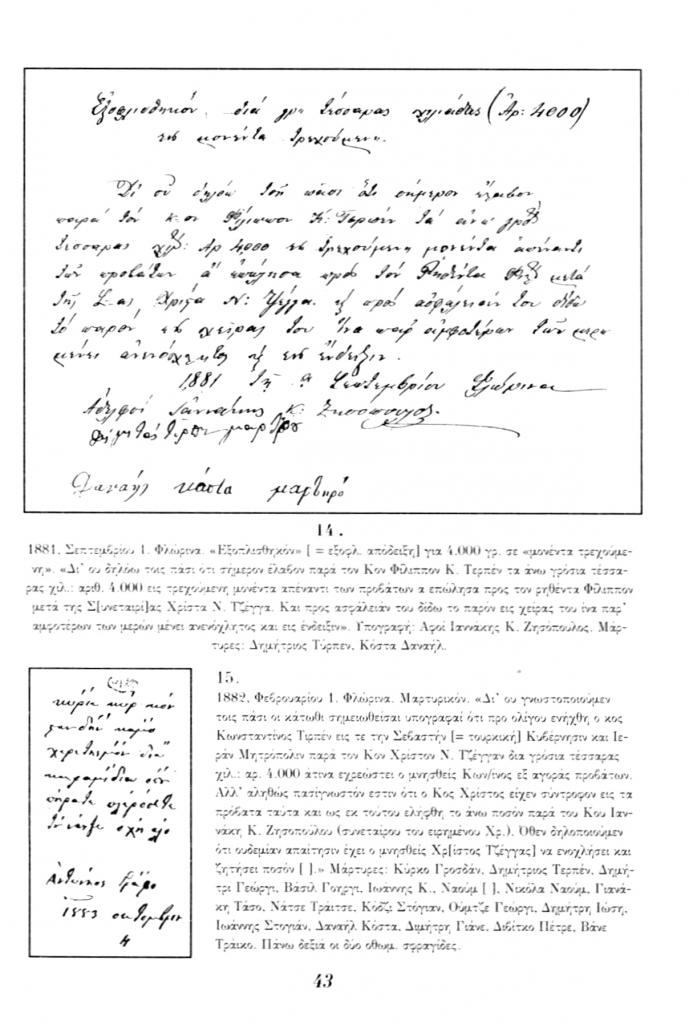 Ἐξοφλισθηκόν, διά γρ: τέσσαρας χιλιάδας (Ἀρ: 4000)
εις μονέντα τρεχούμενη.
Δι' οὗ δηλόω τοῖς πᾶσι ὅτι σήμερον ἔλαβον
παρά τόν κ-ον Φίλιππον Κ: Τερπέν τά ἄνω γρόσ
τέσσαρας χιλ: Ἀρ 4,000 εις τρεχούμενη μονέντα ἀπέναντι
τῶν προβάτων ἁ ἐπώλησα προς τόν Ρηθέντα Φιλ μετά
τῆς Σ-ας Χρίστα Ν: Τζέγγα. κ προς ἀσφάλειάν του δίδω
τό παρόν εις χεῖρας του ἵνα παρ' ἀμφοτέρων τῶν μερῶ
μένει ἀνενόχλητος κ εις ἔνδειξιν.
1881 τῇ α Σεπτεμβρίου Φλώρινα
Ἀδελφοί Ἰαννάκης Κ: Ζησόπουλος.
Δαναήλ κόστα μαρτηρό
14.
1881, Σεπτεμβρίου 1. Φλώρινα. «Εξοπλισθηκόν» [ = εξοφλ. απόδειξη] για 4.000 γρ. σε «μονέντα τρεχούμε-
νη». «Δι' ου δηλόω τοις πάσι ότι σήμερον έλαβον παρά τον Κον Φίλιππον Κ. Τερπέν τα άνω γρόσια τέσσα-
ρας χιλ.: αριθ. 4.000 εις τρεχούμενη μονέντα απέναντι των προβάτων α επώλησα προς τον ρηθέντα Φίλιππον
μετά της Σ[υνεταιρί]ας Χρίστα Ν. Τζέγγα. Και προς ασφάλειάν του δίδω το παρόν εις χείρας του ίνα παρ'
αμφοτέρων των μερών μένει ανενόχλητος και εις ένδειξιν». Υπογραφή: Αφοί Ιαννάκης Κ. Ζησόπουλος. Μάρ-
τυρες: Δημήτριος Τύρπεν, Κόστα Δαναήλ.
15.
1882, Φεβρουαρίου 1. Φλώρινα. Μαρτυρικόν. «Δι' ου γνωστοποιούμεν
τοις πάσι οι κάτωθι σημειωθείσαι υπογραφαί ότι προ ολίγου ενήχθη ο κος
Κωνσταντίνος Τιρπέν εις τε την Σεβαστήν [= τουρκική] Κυβέρνησιν και Ιε-
ράν Μητρόπολιν παρά τον Κον Χρίστον Ν. Τζέγγαν δια γρόσια τέσσαρας
χιλ.: αρ. 4.000 άτινα εχρεώστει ο μνησθείς Κων/ίνος εξ αγοράς προβάτων.
Αλλ' αληθώς πασίγνωστόν εστιν ότι ο Κος Χρίστος είχεν σύντροφον εις τα
πρόβατα ταύτα και ως εκ τούτου ελήφθη το άνω ποσόν παρά του Κου Ιαν-
νάκη Κ. Ζησοπούλου (συνεταίρου του ειρημένου Χρ.). Όθεν δηλοποιούμεν
ότι ουδεμίαν απαίτησιν έχει ο μνησθείς Χρ[ίστος Τζέγγας] να ενοχλήσει και
ζητήσει ποσόν [ ].» Μάρτυρες: Κύρκο Γροσδάν, Δημήτριος Τερπέν, Δημή-
τρι Γεώργι, Βάσιλ Γοηργι, Ιωάννης Κ., Ναούμ [ ], Νικόλα Ναούμ, Γιανά-
κη Τάσο, Νάτσε Τράιτσε, Κότζι Στόγιαν, Ούμτζε Γεώργι, Δημήτρη Ιώση,
Ιωάννης Στογιάν, Δαναήλ Κόστα, Διμήτρη Γιάνε, Διβίτκο Πέτρε, Βάνε
Τράικο. Πάνω δεξιά οι δύο οθωμ. σφραγίδες.
1883 οκτομβριου
4
43